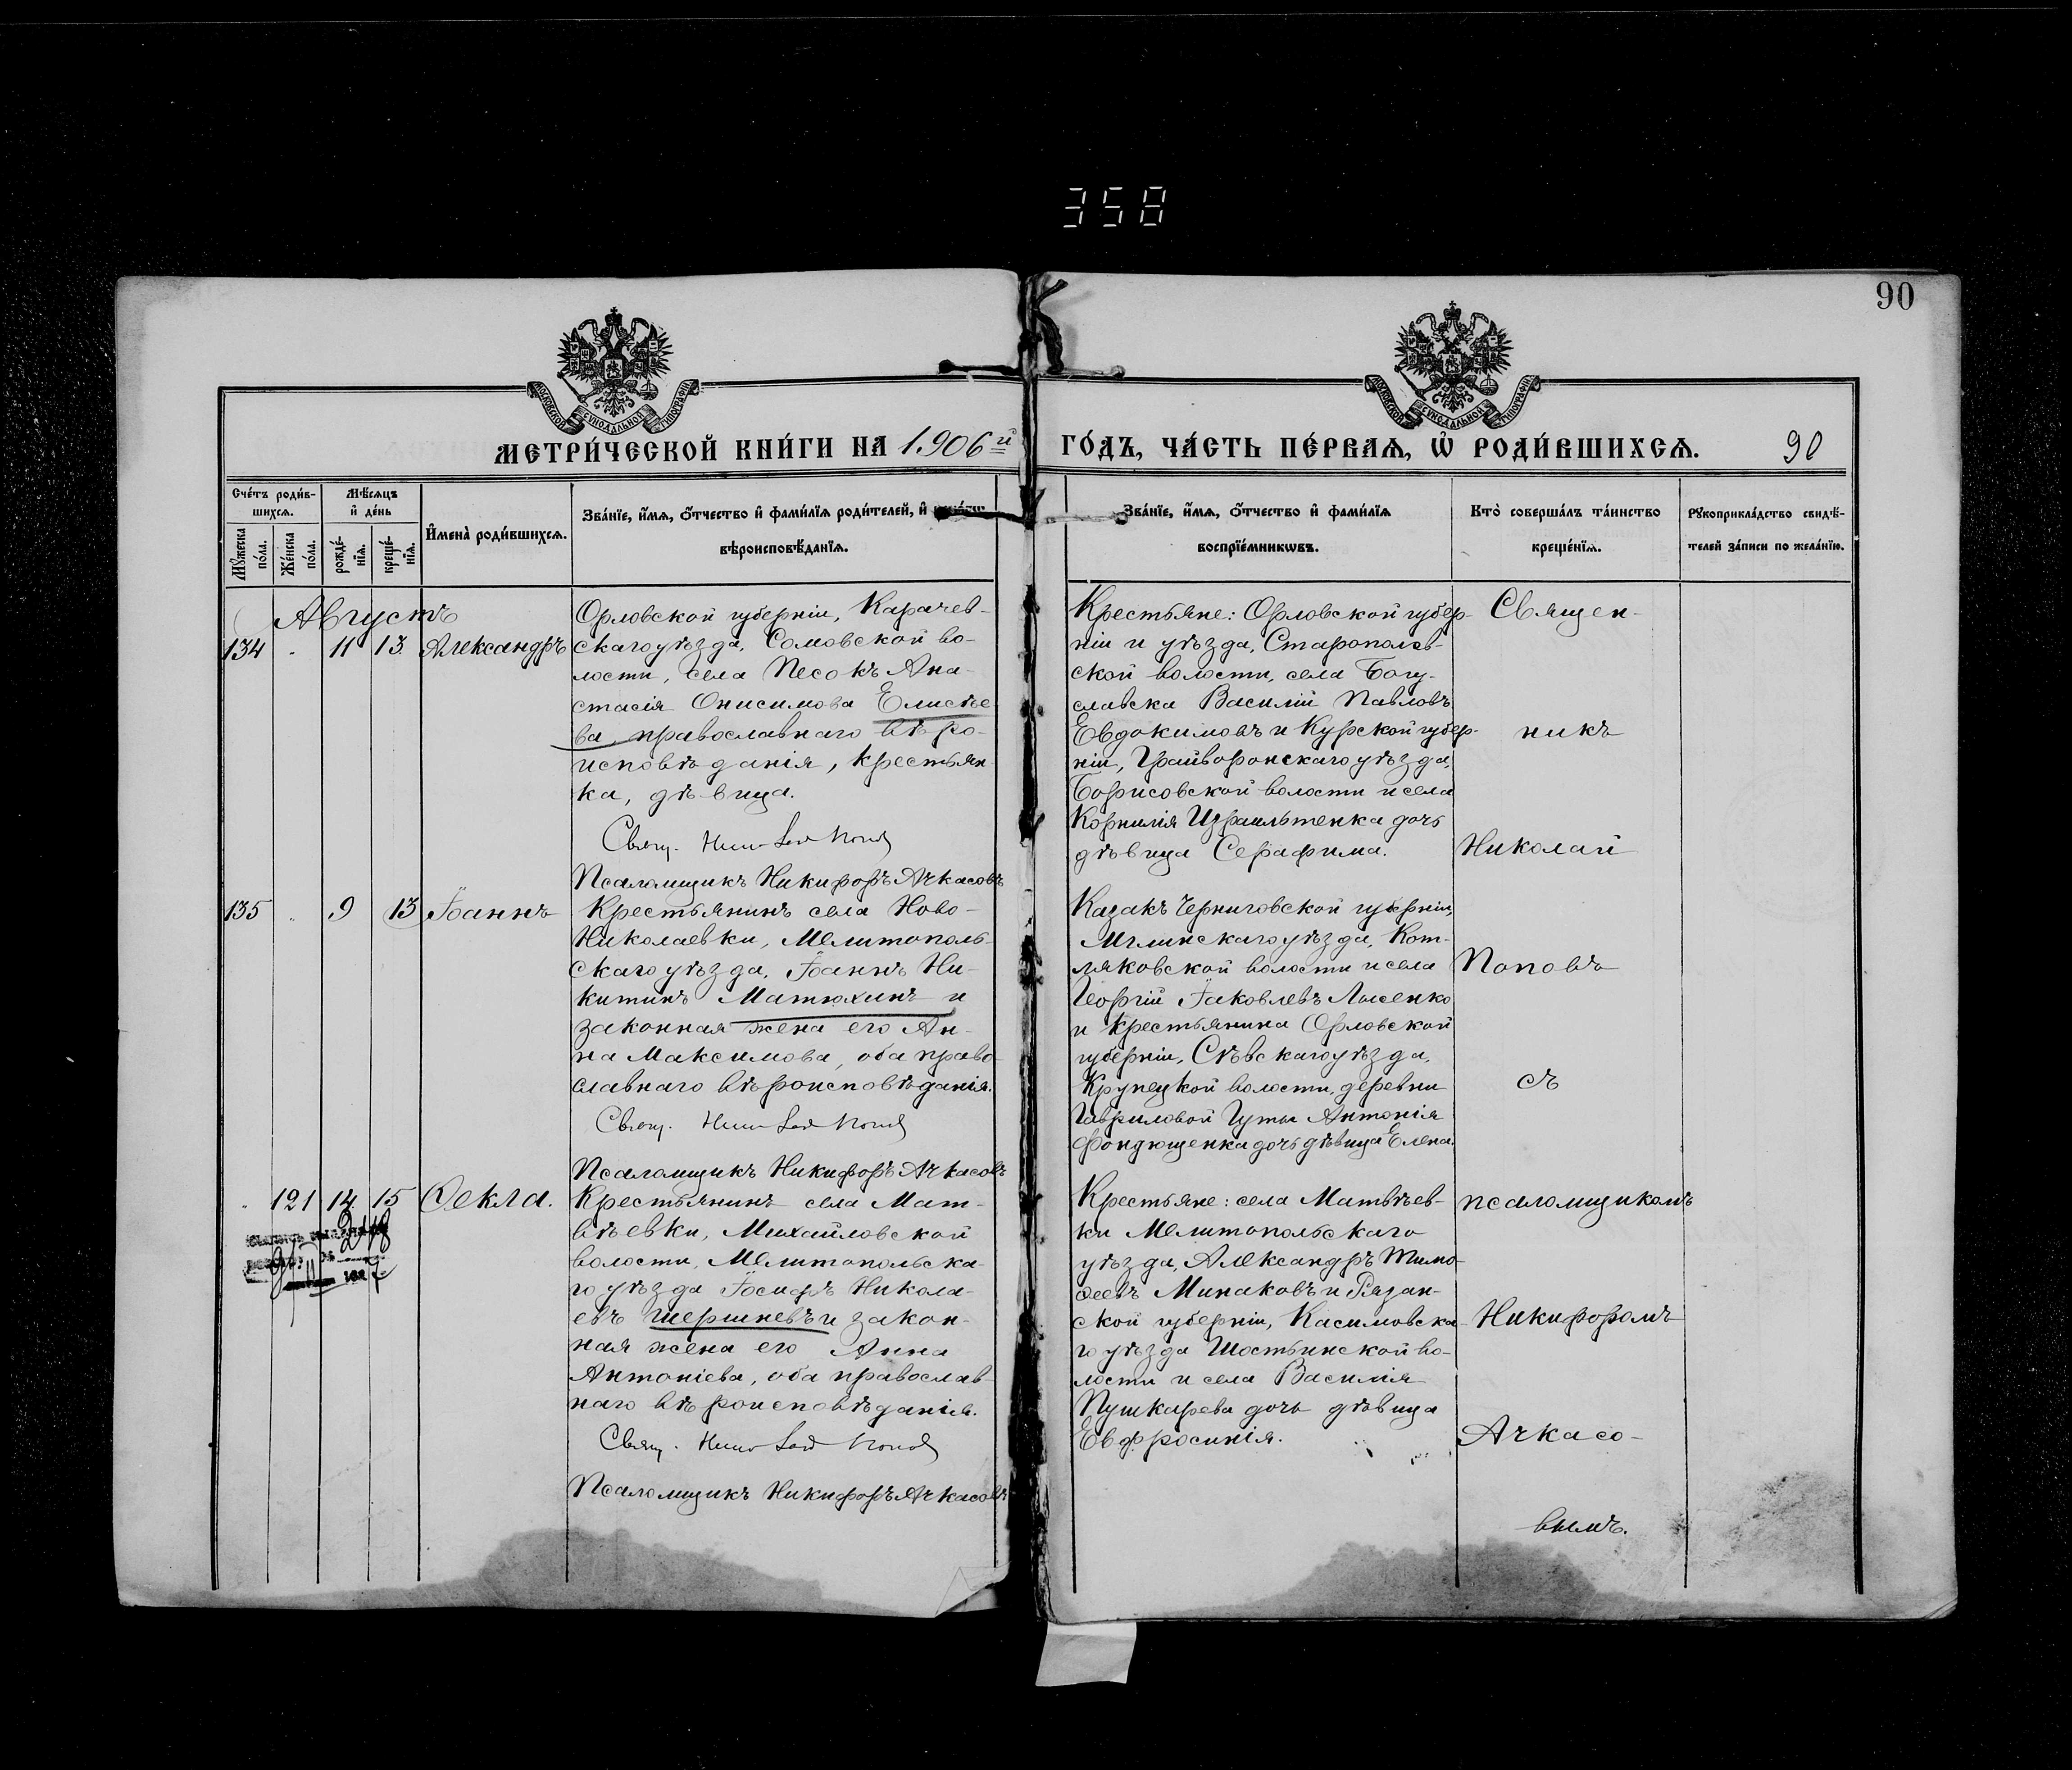 358
90
МЕТРИ́ЧЕСКОЙ КНИ́ГИ НА 1906й ГО́ДЪ, ЧА́СТЬ ПЕ́РВАѦ, Ѡ҆ РОДИ́ВШИХСѦ.
90
Сче́тъ роди́в-
шихсѧ.
Мꙋ́жеска
по́ла.
Же́нска
по́ла.
Мѣ́сѧцъ
и҆ де́нь
рожде́-
нїѧ.
креще́-
нїѧ.
И҆мена̀ роди́вшихсѧ.
Зва́нїе, и҆́мѧ, ѻ҆́тчество и҆ фами́лїѧ роди́телей, и҆
вѣроисповѣ́данїѧ.
Зва́нїе, и҆́мѧ, ѻ҆́тчество и҆ фами́лїѧ
воспрїе́мникѡвъ.
Кто̀ соверша́лъ та́инство
креще́нїѧ.
Рꙋкоприкла́дство свидѣ́-
телей за́писи по жела́нїю.
Августъ
134 11 13. Александръ
Орловской губерніи, Карачев-
скаго уѣзда, Сомовской во-
лости, села Песокъ Ана-
стасія Онисимова Елисѣе
ва, православнаго вѣро-
исповѣданія, крестьян
ка, дѣвица.
Свящ.
Псаломщикъ Никифоръ Ачкасовъ
Крестьяне: Орловской губер-
ніи и уѣзда, Старополев-
ской волости, села Богу-
славска Василій Павловъ
Евдокимовъ и Курской губер-
ніи, Грайворонскаго уѣзда,
Борисовской волости и села
Корнилія Израильтенка дочь
дѣвица Серафима.
Священ-
никъ
Николай
Поповъ
съ
псаломщикомъ
Никифоромъ
Ачкасо-
вымъ.
135 9 13 Іоаннъ
Крестьянинъ села Ново-
Николаевки, Мелитополь-
скаго уѣзда, Іоаннъ Ни-
китинъ Матюхинъ и
законная жена его Ан-
на Максимова, оба право-
славнаго вѣроисповѣданія.
Свящ.
Псаломщикъ Никифоръ Ачкасовъ
Казакъ Черниговской губерніи,
Мглинскаго уѣзда, Кот-
ляковской волости и села
Георгій Іаковлевъ Лысенко
и крестьянина Орловской
губерніи, Сѣвскаго уѣзда,
Крупецкой волости, деревни
Гавриловой Гуты Антонія
Фондющенка дочь дѣвица Елена.
121 14 15 Ѳекла.
Крестьянинъ села Мат-
вѣевки, Михайловской
волости, Мелитопольска-
го уѣзда Іосифъ Никола-
евъ Шершневъ и закон-
ная жена его Анна
Антоніева, оба православ-
наго вѣроисповѣданія.
Свящ.
Псаломщикъ Никифоръ Ачкасовъ
Крестьяне: села Матвѣев-
ки Мелитопольскаго
уѣзда, Александръ Тимо-
ѳеевъ Минаковъ и Рязан-
ской губерніи, Касимовска-
го уѣзда Шостьинской во-
лости и села Василія
Пушкарева дочь дѣвица
Евфросинія.